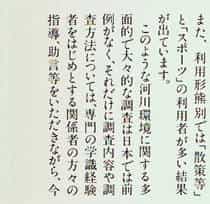 また、利用形態別では「散策等」
と「スポーツ」の利用者が多い結果
が出ています。
このような河川環境に関する多
面的で大々的な調査は日本では前
例がなく、それだけに調査内容や調
査方法については、専門の学識経験
者をはじめとする関係者の方々の
指導・助言等をいただきながら、今